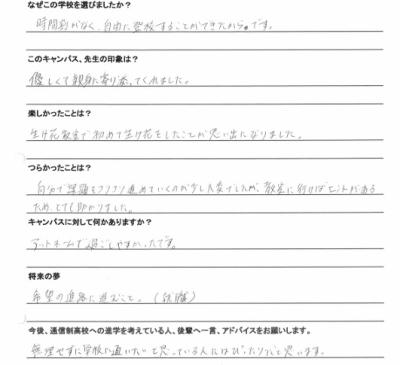 なぜこの学校を選びましたか？
時間割がなく、自由に登校することができたから。です。
このキャンパス、先生の印象は？
優しくて親身に寄り添ってくれました。
楽しかったことは？
生け花教室で初めて生け花をしたことが思い出になりました。
つらかったことは？
自分で課題をコツコツ進めていくのが少し大変でしたが、教室に行けばヒントがある
ため、とても助かりました。
キャンパスに対して何かありますか？
アットホームで過ごしやすかったです。
将来の夢
希望の進路に進むこと。（就職）
今後、通信制高校への進学を考えている人、後輩へ一言、アドバイスをお願いします。
無理せずに学校に通いたいと思っている人にはぴったりだと思います。